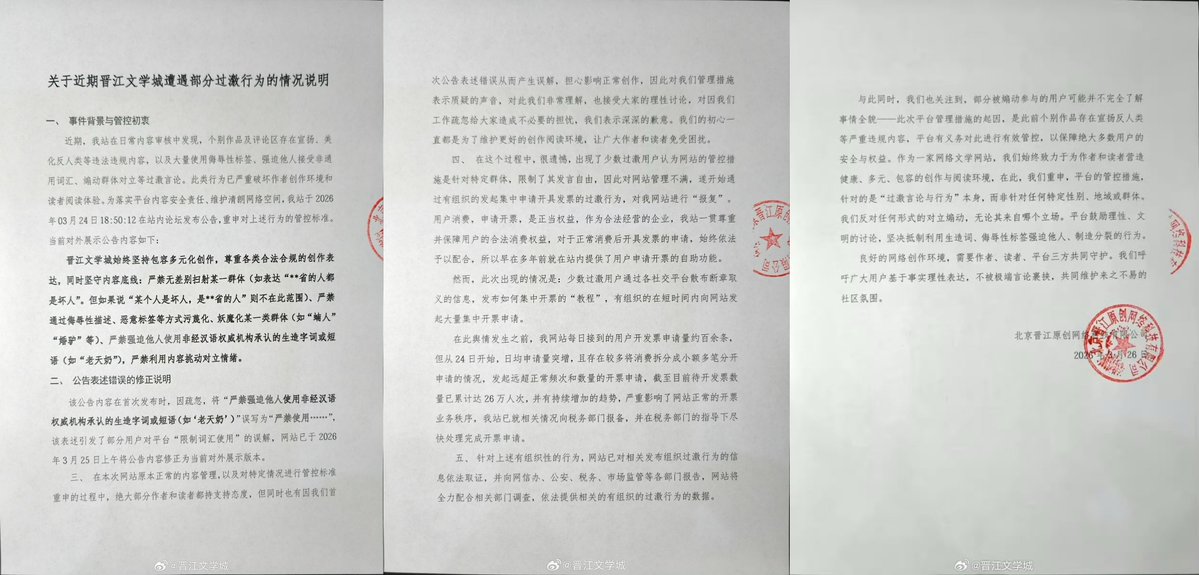 关于近期晋江文学城遭遇部分过激行为的情况说明
一、 事件背景与管控初衷
近期，我站在日常内容审核中发现，个别作品及评论区存在宣扬、美
化反人类等违法违规内容，以及大量使用侮辱性标签、强迫他人接受非通
用词汇、煽动群体对立等过激言论。此类行为已严重破坏作者创作环境和
读者阅读体验。为落实平台内容安全责任、维护清朗网络空间，我站于 2026
年 03 月 24 日 18:50:12 在站内论坛发布公告，重申对上述行为的管控标准。
当前对外展示公告内容如下：
晋江文学城始终坚持包容多元化创作，尊重各类合法合规的创作表
达，同时坚守内容底线：严禁无差别扫射某一群体（如表达“**省的人都
是坏人”。但如果说“某个人是坏人，是**省的人”则不在此范围）、严禁
通过侮辱性描述、恶意标签等方式污蔑化、妖魔化某一类群体（如“蝻人”
“婚驴”等）、严禁强迫他人使用非经汉语权威机构承认的生造字词或短
语（如“老天奶”），严禁利用内容挑动对立情绪。
二、 公告表述错误的修正说明
该公告内容在首次发布时，因疏忽，将“严禁强迫他人使用非经汉语
权威机构承认的生造字词或短语（如‘老天奶’）”误写为“严禁使用……”，
该表述引发了部分用户对平台“限制词汇使用”的误解，网站已于 2026
年 3 月 25 日上午将公告内容修正为当前对外展示版本。
三、 在本次网站原本正常的内容管理，以及对特定情况进行管控标准
重申的过程中，绝大部分作者和读者都持支持态度，但同时也有因我们首
次公告表述错误从而产生误解，担心影响正常创作，因此对我们管理措施
表示质疑的声音，对此我们非常理解，也接受大家的理性讨论，对因我们
工作疏忽给大家造成不必要的担忧，我们表示深深的歉意。我们的初心一
直都是为了维护更好的创作阅读环境，让广大作者和读者免受困扰。
四、 在这个过程中，很遗憾，出现了少数过激用户认为网站的管控措
施是针对特定群体，限制了其发言自由，因此对网站管理不满，遂开始通
过有组织的发起集中申请开具发票的过激行为，对我网站进行“报复”。
用户消费，申请开票，是正当权益，作为合法经营的企业，我站一贯尊重
并保障用户的合法消费权益，对于正常消费后开具发票的申请，始终依法
予以配合，所以早在多年前就在站内提供了用户申请开票的自助功能。
然而，此次出现的情况是：少数过激用户通过各社交平台散布断章取
义的信息，发布如何集中开票的“教程”，有组织的在短时间内向网站发
起大量集中开票申请。
在此舆情发生之前，我网站每日接到的用户开票申请量约百余条，
但从 24 日开始，日均申请量突增，且存在较多将消费拆分成小额多笔分开
申请的情况，发起远超正常频次和数量的开票申请，截至目前待开发票数
量已累计达 26 万人次，并有持续增加的趋势，严重影响了网站正常的开票
业务秩序，我站已就相关情况向税务部门报备，并在税务部门的指导下尽
快处理完成开票申请。
五、 针对上述有组织性的行为，网站已对相关发布组织过激行为的信
息依法取证，并向网信办、公安、税务、市场监管等各部门报告，网站将
全力配合相关部门调查，依法提供相关的有组织的过激行为的数据。
与此同时，我们也关注到，部分被煽动参与的用户可能并不完全了解
事情全貌——此次平台管理措施的起因，是此前个别作品存在宣扬反人类
等严重违规内容，平台有义务对此进行有效管控，以保障绝大多数用户的
安全与权益。作为一家网络文学网站，我们始终致力于为作者和读者营造
健康、多元、包容的创作与阅读环境，在此，我们重申，平台的管控措施，
针对的是“过激言论与行为”本身，而非针对任何特定性别、地域或群体。
我们反对任何形式的对立煽动，无论其来自哪个立场。平台鼓励理性、文
明的讨论，坚决抵制利用生造词、侮辱性标签强迫他人、制造分裂的行为。
良好的网络创作环境，需要作者、读者、平台三方共同守护。我们呼
吁广大用户基于事实理性表达，不被极端言论裹挟，共同维护来之不易的
社区氛围。
北京晋江原创网络科技有限公司
2026 年 3 月 26 日
@晋江文学城
@晋江文学城
@晋江文学城